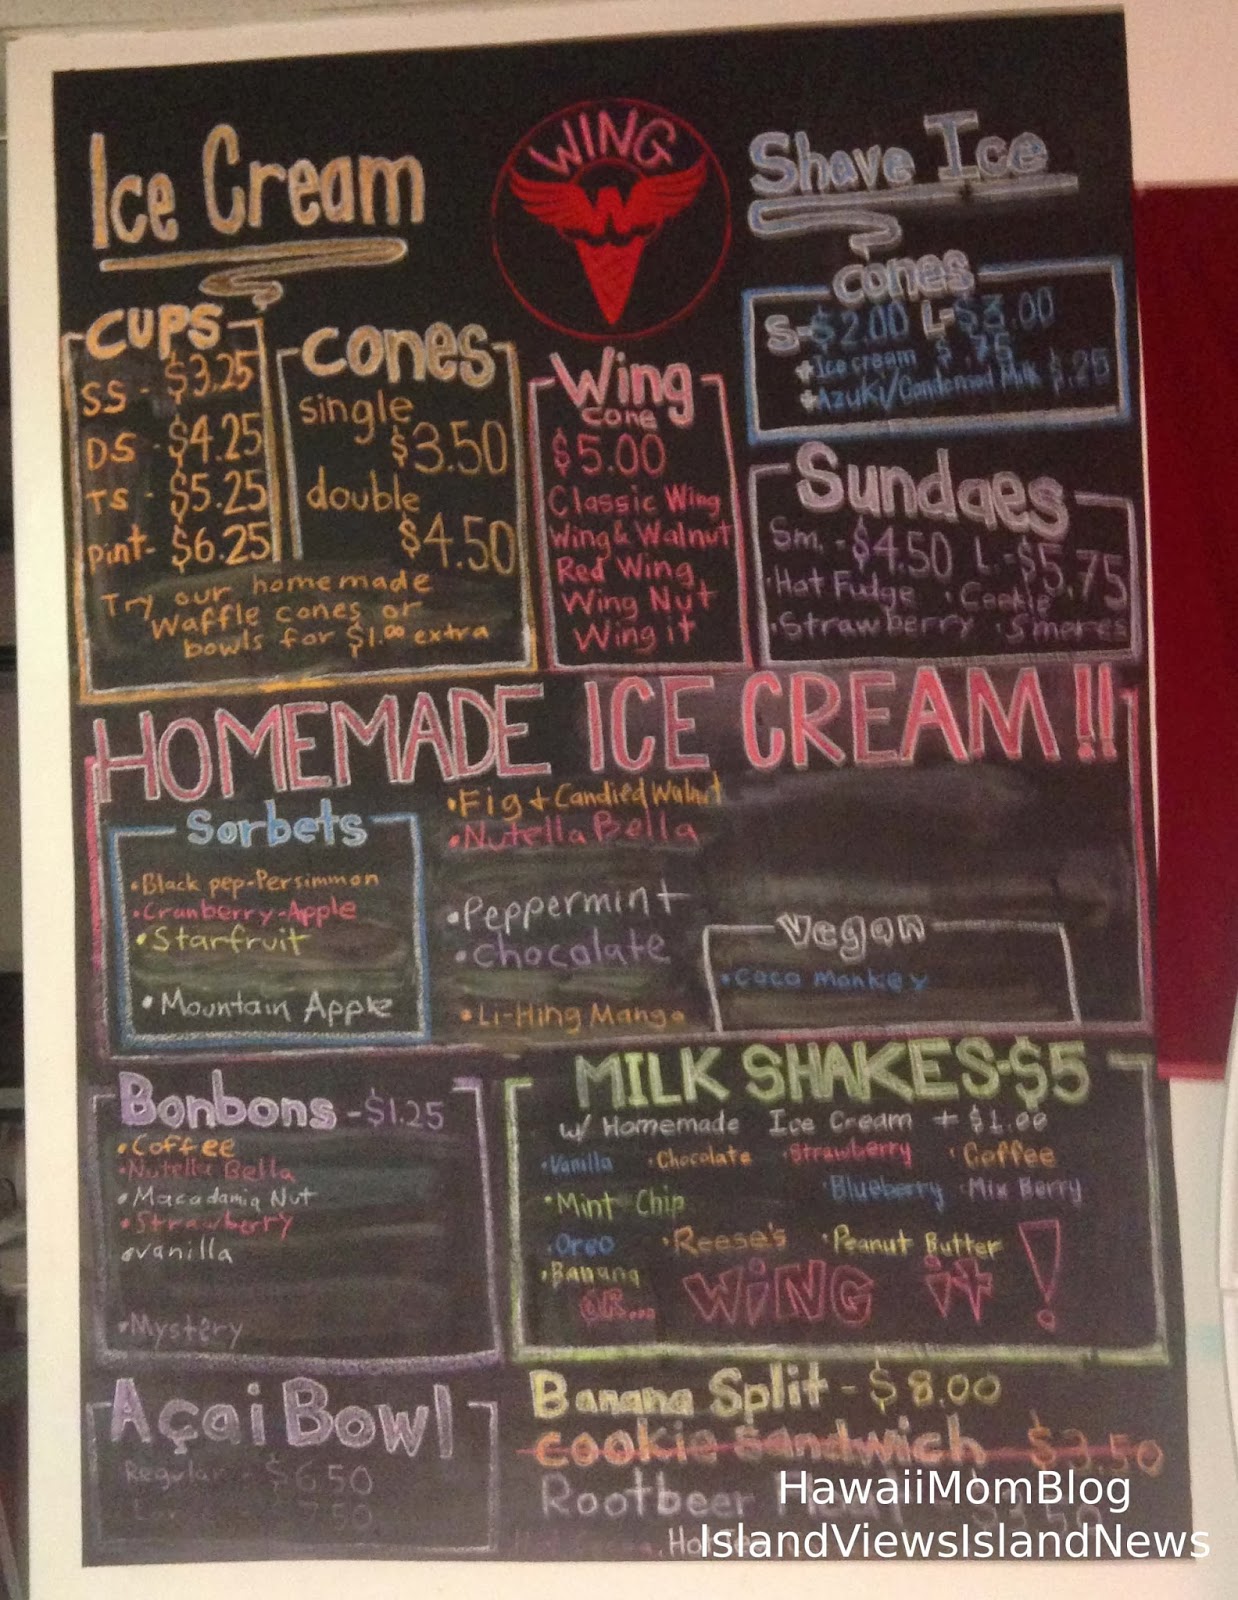 Ice Cream
WING
W
Shave Ice
Cups
SS - $3.25
DS - $4.25
TS - $5.25
pint- $6.25
Cones
single
$3.50
double
$4.50
Try our homemade
Waffle cones or
bowls for $1.00 extra
Wing
Cone
$5.00
Classic Wing
Wing & Walnut
Red Wing
Wing Nut
Wing it
Cones
S-$2.00 L-$3.00
+Ice cream $.75
+Azuki/Condensed Milk $.25
Sundaes
Sm. -$4.50 L.-$5.75
•Hot Fudge •Cookie
•Strawberry •Smores
HOMEMADE ICE CREAM!!
Sorbets
•Black pep-Persimmon
•Cranberry-Apple
•Starfruit
•Mountain Apple
•Fig + Candied Walnut
•Nutella Bella
•Peppermint
•Chocolate
•Li-Hing Mango
Vegan
•Coco Monkey
Bonbons -$1.25
•Coffee
•Nutella Bella
•Macadamia Nut
•Strawberry
•Vanilla
•Mystery
MILK SHAKES-$5
w/ Homemade Ice Cream + $1.00
•Vanilla •Chocolate •Strawberry •Coffee
•Mint Chip •Blueberry •Mix Berry
•Oreo •Reese's •Peanut Butter
•Banana
OR... WiNG it!
Açai Bowl
Regular - $6.50
50
Banana Split - $8.00
Cookie Sandwich $3.50
Rootbeer
HawaiiMomBlog
IslandViewsIslandNews